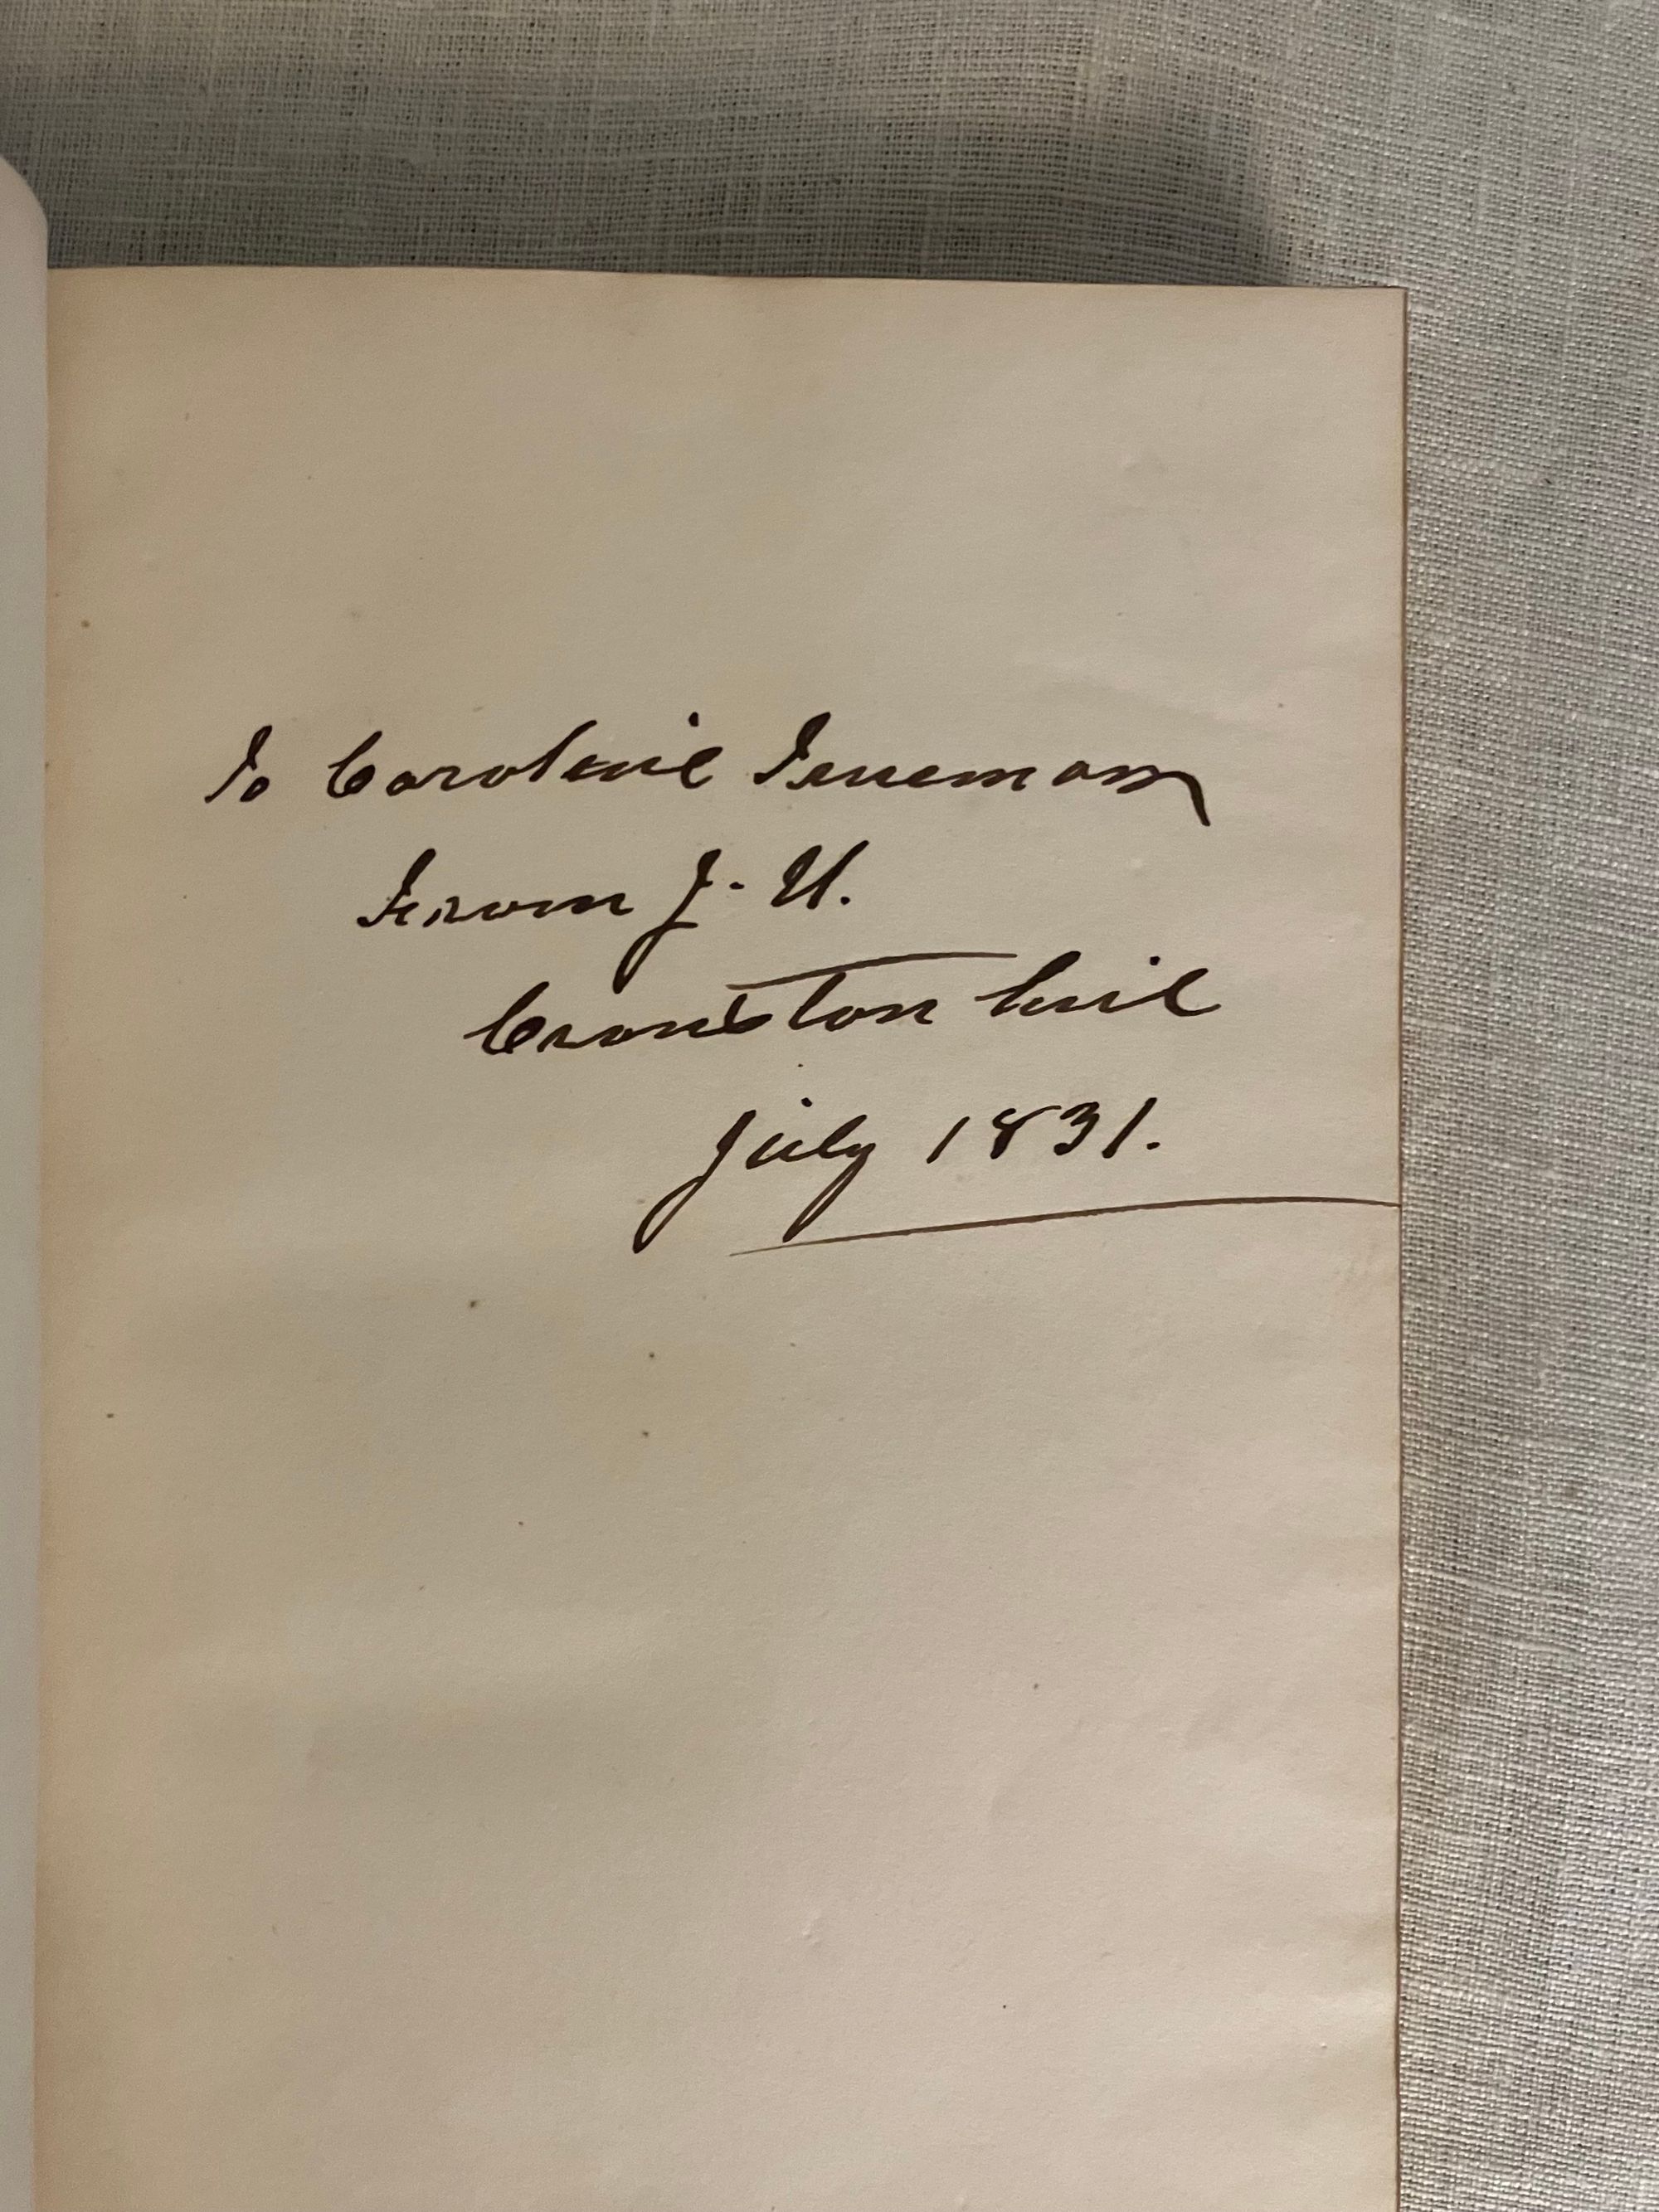 To Caroline Freeman
From J. H.
Cranston hill
July 1831.